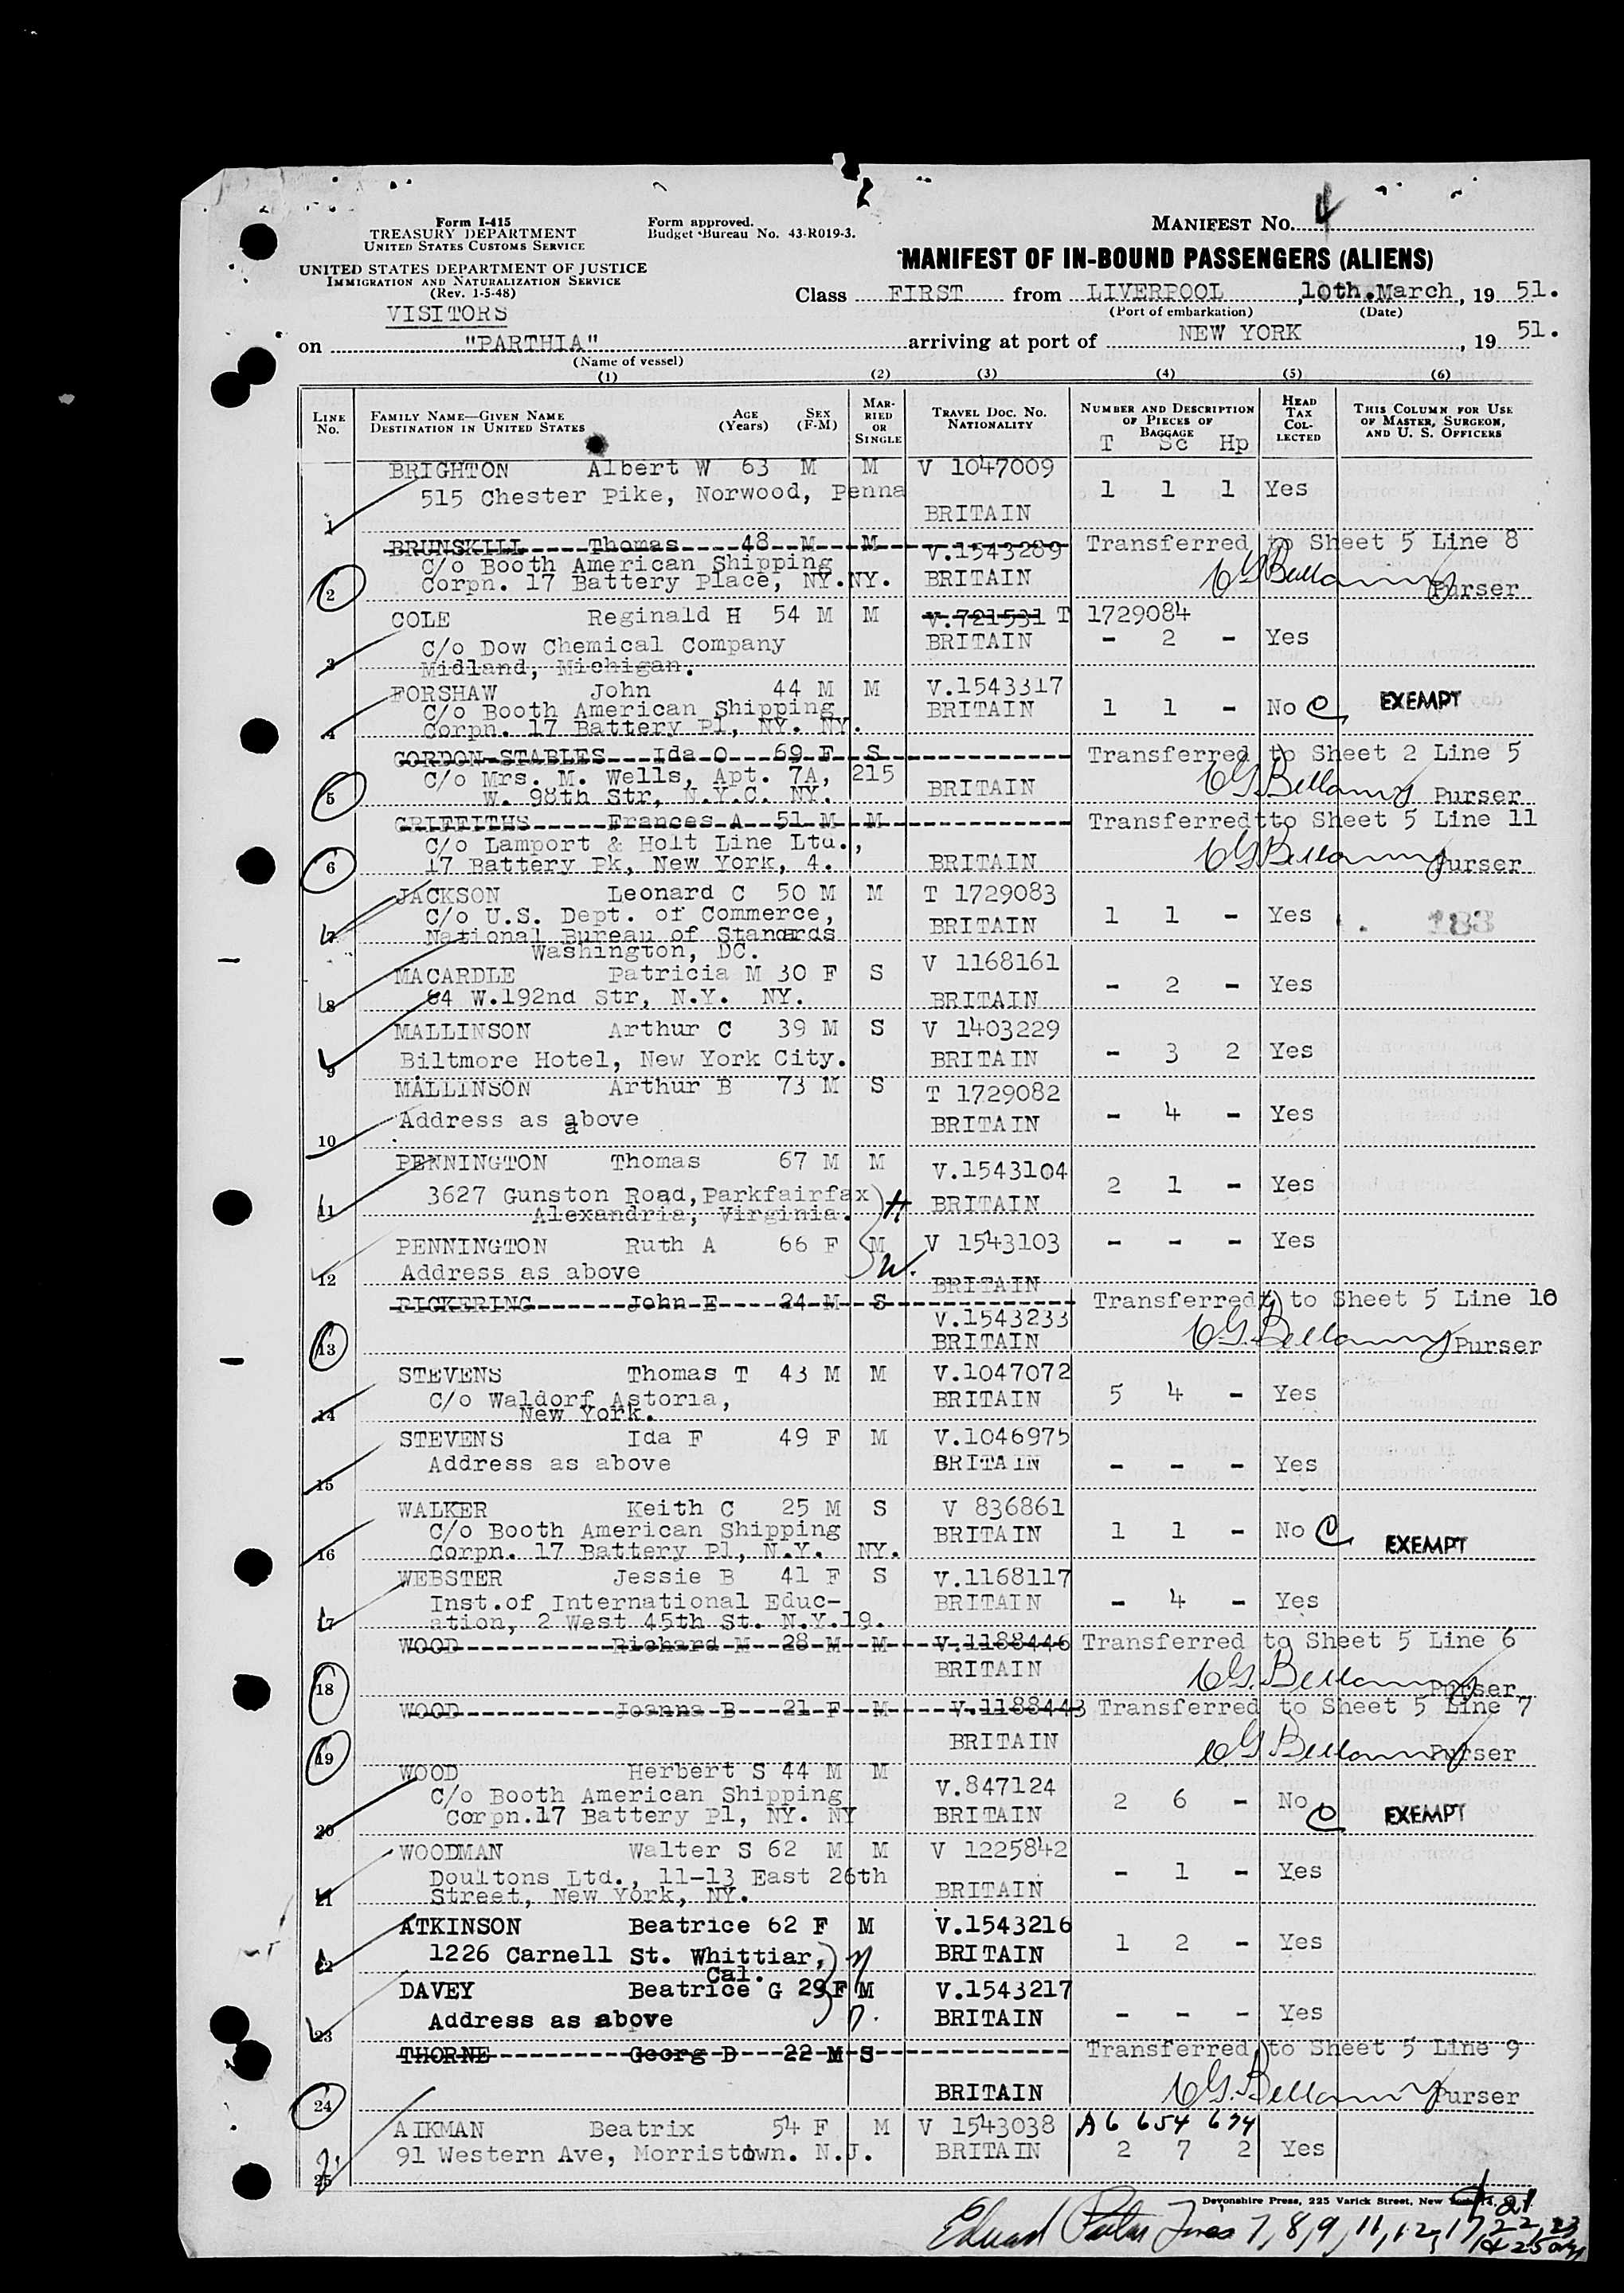 Form I-415
TREASURY DEPARTMENT
UNITED STATES CUSTOMS SERVICE
UNITED STATES DEPARTMENT OF JUSTICE
IMMIGRATION AND NATURALIZATION SERVICE
(Rev. 1-5-48)
VISITORS
Form approved.
Budget Bureau No. 43-R019-3.
MANIFEST No. 4
MANIFEST OF IN-BOUND PASSENGERS (ALIENS)
Class FIRST from LIVERPOOL, 10th.March, 19 51.
(Port of embarkation) (Date)
on "PARTHIA" arriving at port of NEW YORK, 19 51.
(Name of vessel)
(1) (2) (3) (4) (5) (6)
LINE No. FAMILY NAME—GIVEN NAME DESTINATION IN UNITED STATES AGE (Years) SEX (F-M) MARRIED OR SINGLE TRAVEL DOC. NO. NATIONALITY NUMBER AND DESCRIPTION OF PIECES OF BAGGAGE HEAD TAX COLLECTED THIS COLUMN FOR USE OF MASTER, SURGEON, AND U. S. OFFICERS
T Sc Hp
BRIGHTON Albert W 63 M M V 1047009
515 Chester Pike, Norwood, Penna 1 1 1 Yes
1 BRITAIN
BRUNSKILL Thomas 48 M M V.1543289 Transferred to Sheet 5 Line 8
C/o Booth American Shipping
2 Corpn. 17 Battery Place, NY.NY. BRITAIN C G Bellamy Purser
COLE Reginald H 54 M M V.721531 T 1729084
C/o Dow Chemical Company BRITAIN - 2 - Yes
3 Midland, Michigan.
FORSHAW John 44 M M V.1543317
C/o Booth American Shipping BRITAIN 1 1 - No EXEMPT
4 Corpn. 17 Battery Pl, NY. NY.
GORDON-STABLES Ida O 69 F S Transferred to Sheet 2 Line 5
C/o Mrs. M. Wells, Apt. 7A, 215
5 W. 98th Str, N.Y.C. NY. BRITAIN C G Bellamy Purser
GRIFFITHS Frances A 51 M M Transferredtto Sheet 5 Line 11
C/o Lamport & Holt Line Ltd.,
6 17 Battery Pk, New York, 4. BRITAIN C G Bellamy Purser
JACKSON Leonard C 50 M M T 1729083
C/o U.S. Dept. of Commerce, BRITAIN 1 1 - Yes 183
7 National Bureau of Standards
Washington, DC.
MACARDLE Patricia M 30 F S V 1168161
8 64 W.192nd Str, N.Y. NY. BRITAIN - 2 - Yes
MALLINSON Arthur C 39 M S V 1403229
9 Biltmore Hotel, New York City. BRITAIN - 3 2 Yes
MALLINSON Arthur B 73 M S T 1729082
Address as above BRITAIN - 4 - Yes
10
PENNINGTON Thomas 67 M M V.1543104
3627 Gunston Road, Parkfairfax H BRITAIN 2 1 - Yes
11 Alexandria, Virginia.
PENNINGTON Ruth A 66 F M V 1543103 - - - Yes
12 Address as above W. BRITAIN
PICKERING John E 24 M S Transferred to Sheet 5 Line 10
V.1543233
13 BRITAIN C.G. Bellamy Purser
STEVENS Thomas T 43 M M V.1047072
C/o Waldorf Astoria, BRITAIN 5 4 - Yes
14 New York.
STEVENS Ida F 49 F M V.1046975
Address as above BRITAIN - - - Yes
15
WALKER Keith C 25 M S V 836861
C/o Booth American Shipping BRITAIN 1 1 - No EXEMPT
16 Corpn. 17 Battery Pl, N.Y. NY.
WEBSTER Jessie B 41 F S V.1168117
Inst.of International Educ- BRITAIN - 4 - Yes
17 ation, 2 West 45th St. N.Y.19.
WOOD Richard M 28 M M V.1188446 Transferred to Sheet 5 Line 6
18 BRITAIN C G. Bellamy Purser
WOOD Joanna B 21 F M V.1188443 Transferred to Sheet 5 Line 7
19 BRITAIN C G Bellamy Purser
WOOD Herbert S 44 M M V.847124
C/o Booth American Shipping 2 6 - No EXEMPT
20 Corpn.17 Battery Pl, NY. NY BRITAIN
WOODMAN Walter S 62 M M V 1225842
Doultons Ltd., 11-13 East 26th - 1 - Yes
21 Street, New York, NY. BRITAIN
ATKINSON Beatrice 62 F M V.1543216
22 1226 Carnell St. Whittiar, Cal. BRITAIN 1 2 - Yes
DAVEY Beatrice G 29 F M V.1543217
23 Address as above BRITAIN - - - Yes
THORNE Georg D 22 M S Transferred to Sheet 5 Line 9
24 BRITAIN C G. Bellamy Purser
AIKMAN Beatrix 54 F M V 1543038 A6 654 674
25 91 Western Ave, Morristown. N.J. BRITAIN 2 7 2 Yes
Devonshire Press, 225 Varick Street, New
7, 8, 9, 11, 12, 17 21 22, 23